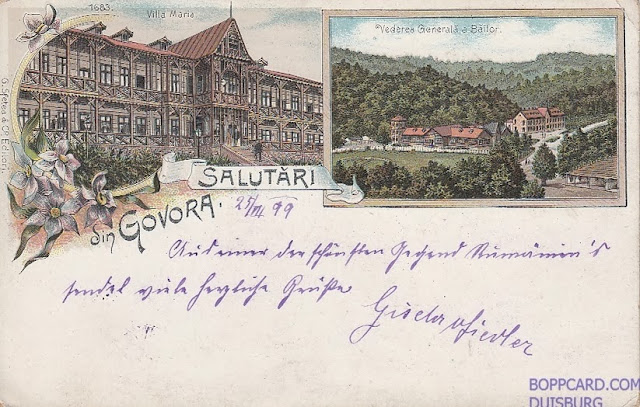 1683.
Villa Maria
Vederea Generală a Băilor.
G. Sfetea & Co Editori.
SALUTĂRI
din GOVORA.
99
Aus einer der schönsten Gegend Rumänien's
sendet viele herzliche Grüße
Gisela Fiedler
BOPPCARD.COM
DUISBURG